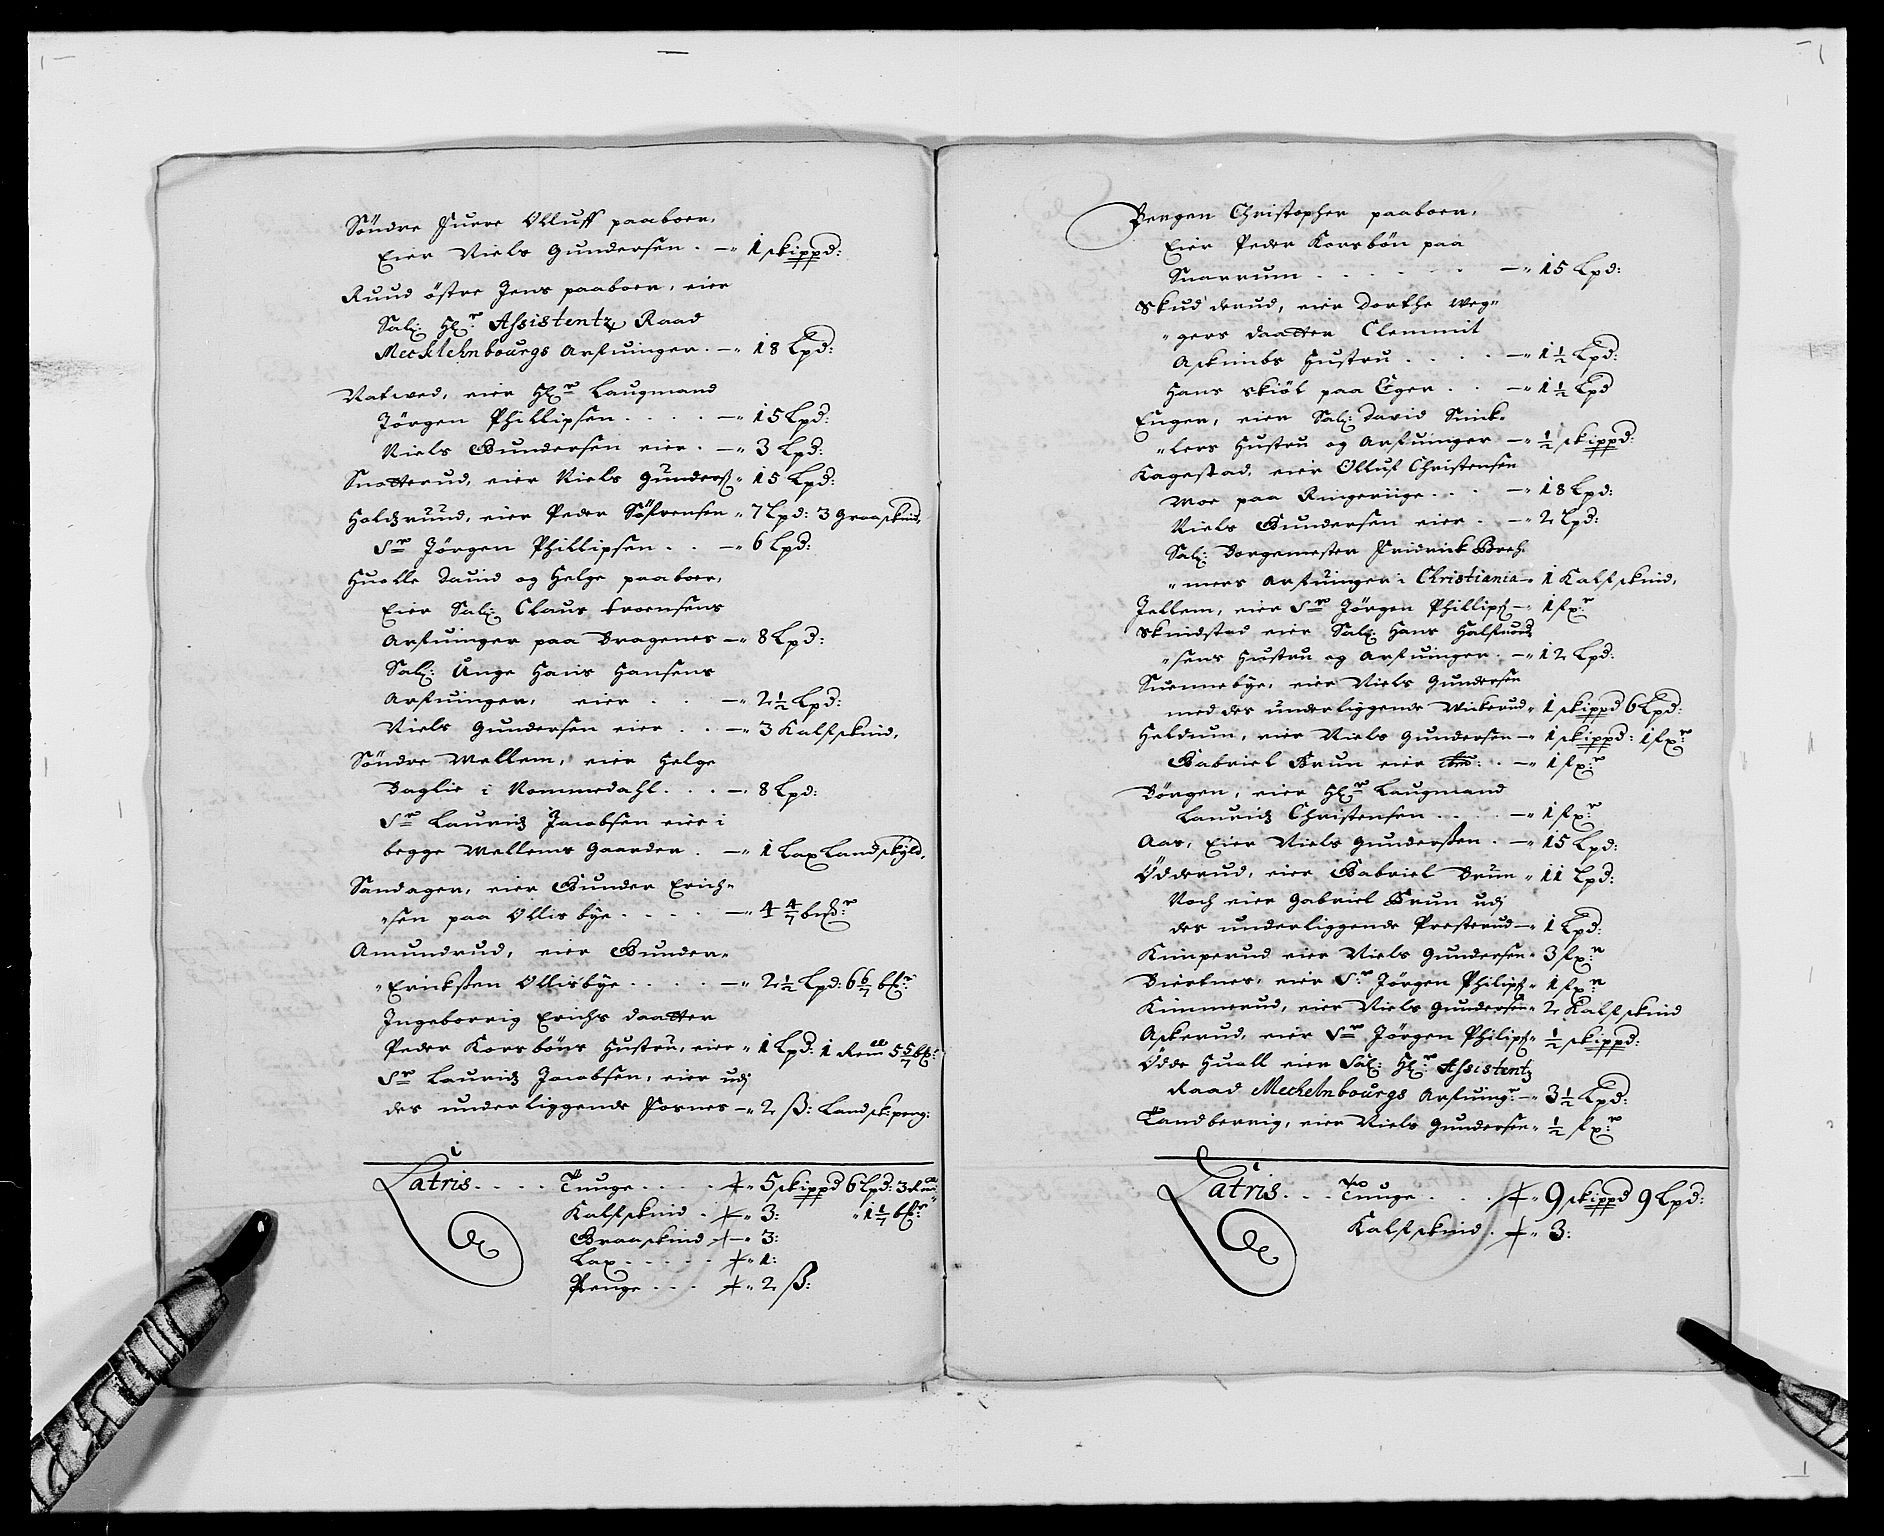 Söndre Juere Olluff paaboer,
Eier Niels Gundersen . —„ 1 skippd:
Ruud östre Jens paaboer, eier
Sal: Hr. Assistentz Raad
Mecklehnbourgs Arfuinger. —„ 18 Lpd:
Natwed, eier Hr. Laugmand
Jörgen Phillipsen . . . . —„ 15 Lpd:
Niels Gundersen eier. —„ 3 Lpd:
Snatterud, eier Niels Gunders: „ 15 Lpd:
Holdzruud, eier Peder Söfrensen „ 7 Lpd: 3 Graaskind,
Sr. Jörgen Phillipsen . . —„ 6 Lpd:
Hualle Dauid og Helge paaboer,
Eier Sal: Claus troensens
Arfuinger paa Bragenes —„ 8 Lpd:
Sal: Unge Hans Hansens
Arfuinger, eier . . —„ 2 1/2 Lpd:
Niels Gundersen eier . . —„ 3 Kalfskind,
Söndre Mellem, eier Helge
Daglie i Nommedahl . . . —„ 8 Lpd:
Sr. Lauridz Jacobsen eier i
begge Mellems Gaarder . —„ 1 Lax Landskyld,
Sandager, eier Gunder Erich-
„sen paa Ollisbye . . . . —„ 4 4/7 bsr:
Amundrud, eier Gunder-
„Ericksen Ollisbye . . . . —„ 2 1/2 Lpd: 6 6/7 bsr:
Ingeborrig Erichs daatter
Peder Korsböns Hustru, eier „ 1 Lpd: 1 Rem 5 5/7 bs:
Sr. Lauridz Jacobsen, eier udj
des underliggende Fosnes —„ 2 ß: Landskpeng:
Latris . . . . Tunge . . . . „ 5 skippd 6 Lpd: 3 Rem
Kalfskind . „ 3: „ 1 1/7 bsr:
Graaskind — 3:
Lax . . . . . „ 1:
Penge . . . „ 2 ß:
Bergen Christopher paaboer,
Eier Peder Korsbön paa
Snarrum . . . . . . —„ 15 Lpd:
Skudderud, eier Dorthe Weg-
„gers daatter Clemmit
Askimbs Hustru . . . . —„ 1 1/2 Lpd:
Hans Skiöl paa Eger . . —„ 1 1/2 Lpd
Enger, eier Sal: David Sink-
„lers Hustru og Arfuinger —„ 1/2 skippd:
Kagestad, eier Olluf Christensen
Moe paa Ringeriige . . . —„ 18 Lpd:
Niels Gundersen eier . —„ 2 Lpd:
Sal: Borgemester Fridrick Breh-
„mers Arfuinger i Christiania —„ 1 Kalfskind,
Jellem, eier Sr. Jörgen Phillips: —„ 1 fxr:
Skindstad eier Sal: Hans Halfuord
„sens Hustru og Arfuinger. —„ 12 Lpd:
Suennebye, eier Niels Gundersen
med des underliggende Wickerud „ 1 skippd 6 Lpd:
Heldum, eier Niels Gundersen —„ 1 skippd: 1 fxr:
Gabriel Brun eier . —„ 1 fxr:
Börgen, eier Hr. Laugmand
Lauridz Christensen . . . . —„ 1 fxr:
Aas, Eier Niels Gundersen . —„ 15 Lpd:
Ödderud, eier Gabriel Brun „ 11 Lpd:
Noch eier Gabriel Brun udj
des underliggende Presterud —„ 1 Lpd:
Kimperud eier Niels Gundersen „ 3 fxr:
Biertnes, eier Sr. Jörgen Philips: „ 1 fxr:
Kimmerud, eier Niels Gundersen „ 2 Kalfskind
Askerud, eier Sr. Jörgen Philips: „ 1/2 skippd:
Ödde Huall eier Sal: Hr. Assistentz
Raad Mechelnbourgs Arfuing: —„ 3 1/2 Lpd:
Tandberrig, eier Niels Gundersen „ 1/2 fxr:
Latris . . . Tunge . . . . „ 9 skippd 9 Lpd:
Kalfskind . „ 3: